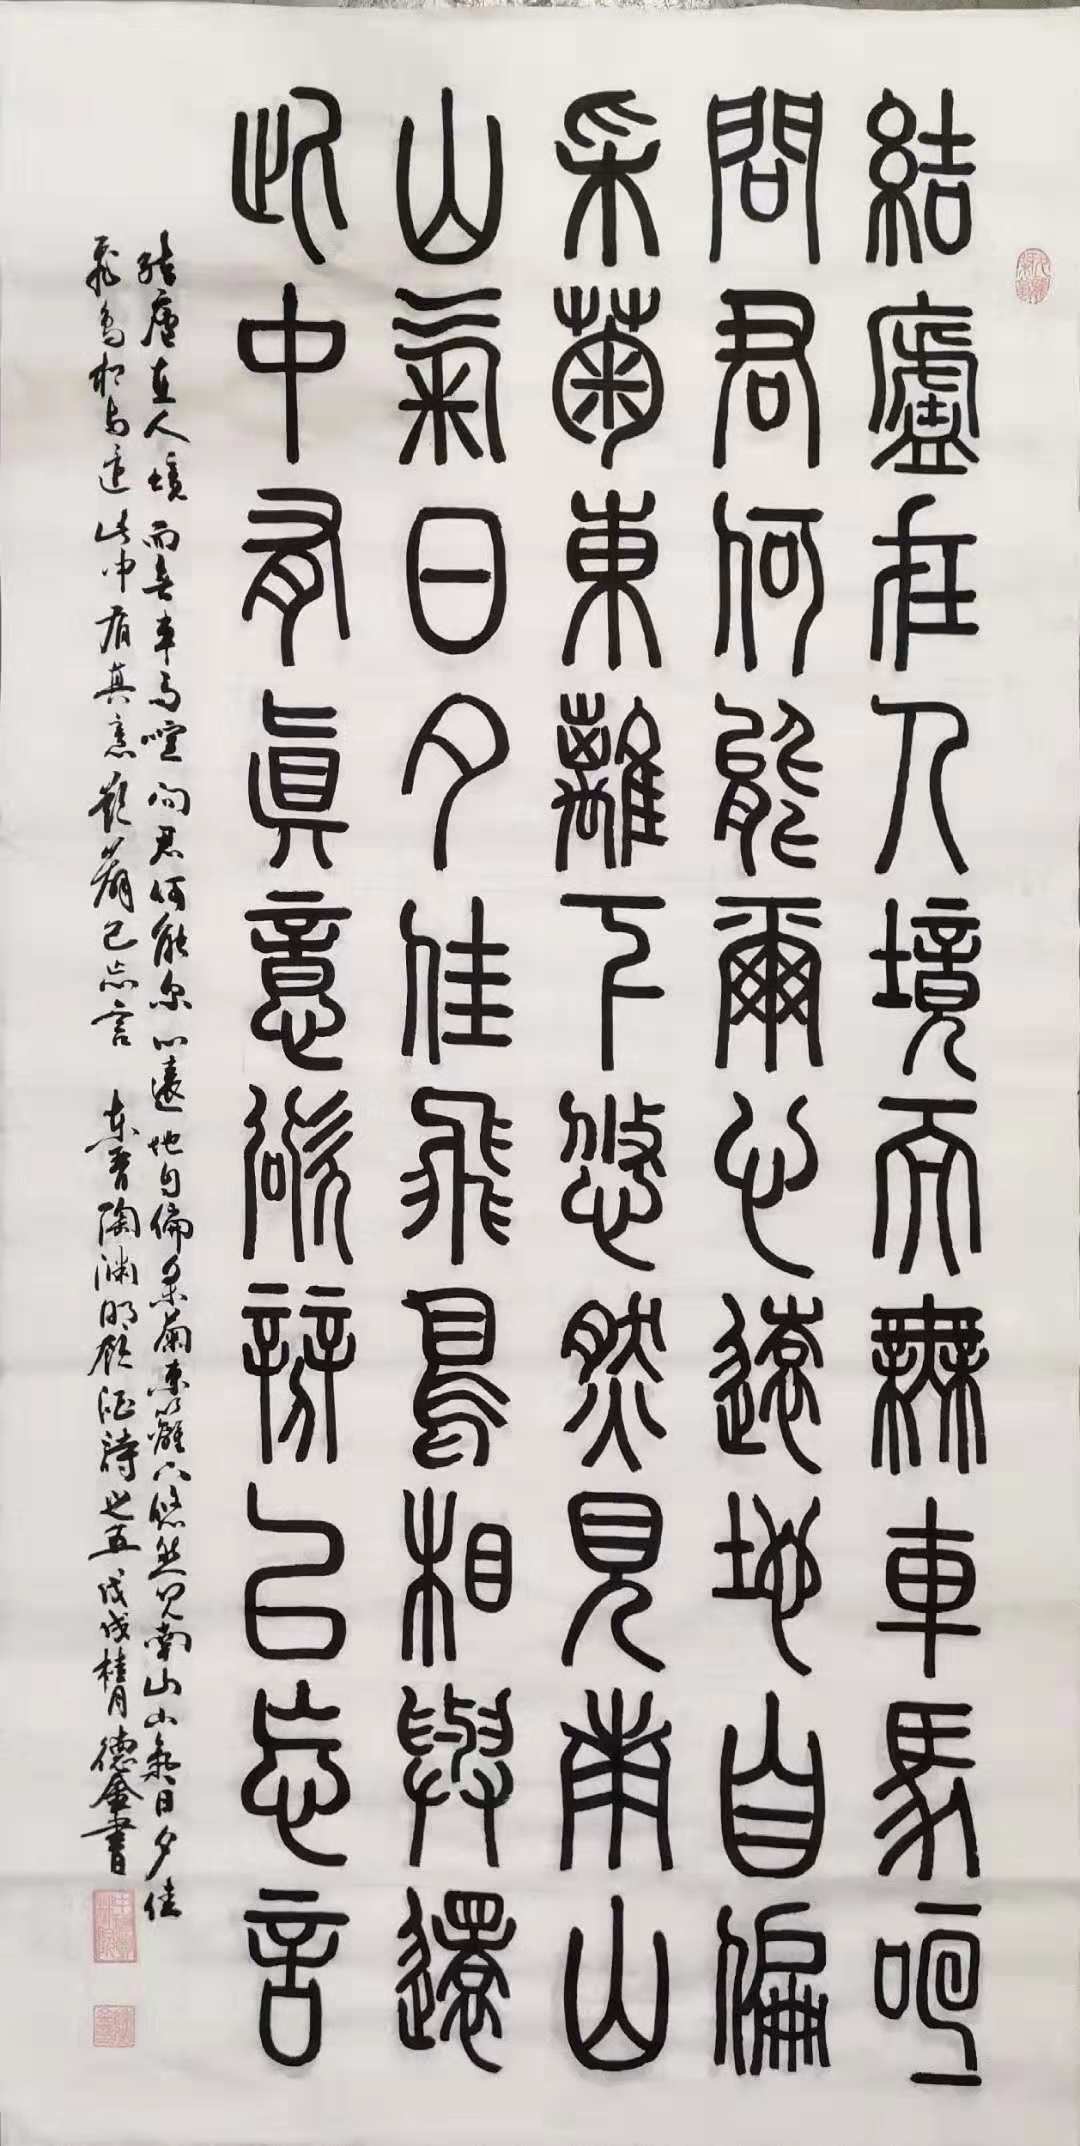 結廬在人境而無車馬喧
問君何能爾心遠地自偏
采菊東籬下悠然見南山
山氣日夕佳飛鳥相與還
此中有真意欲辯已忘言
結廬在人境而無車馬喧問君何能尔心遠地自偏采菊東籬下悠然見南山山氣日夕佳
飛鳥相与還此中有真意欲辯已忘言 東晋陶渊明飲酒詩之五戊戌桂月德金書